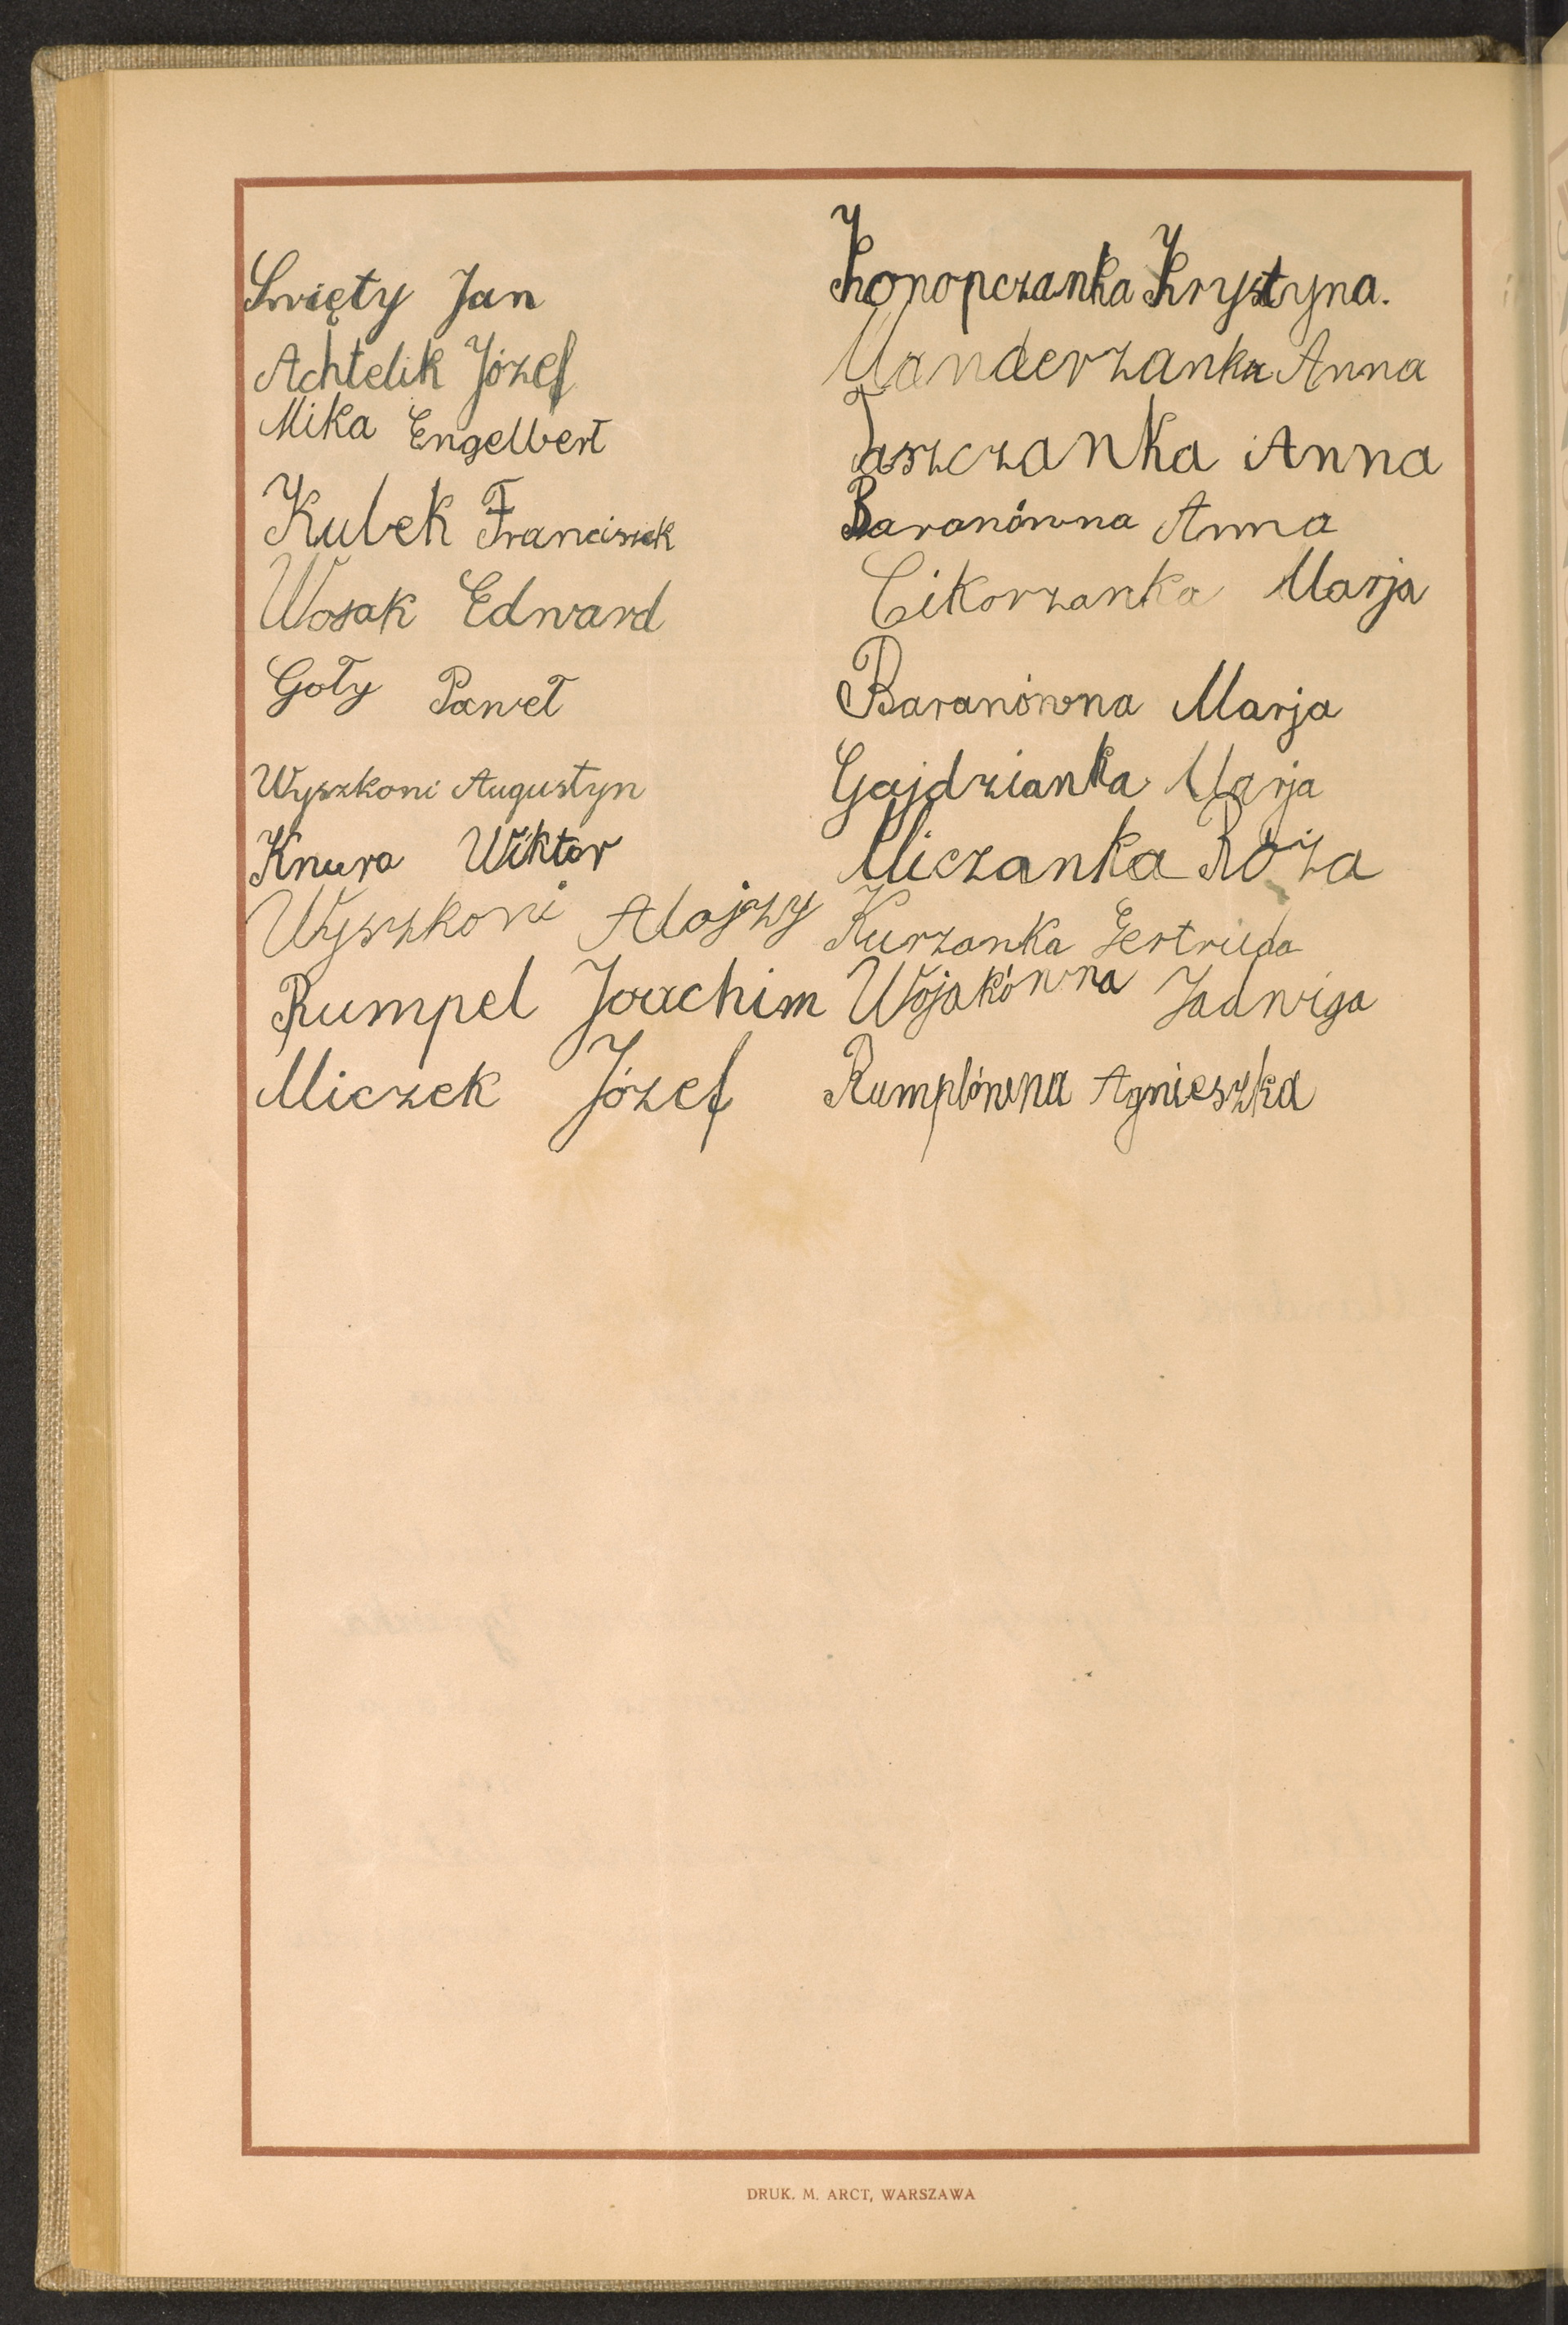 Swięty Jan
Achtelik Józef
Mika Engelbert
Kubek Franciszek
Wosak Edward
Goły Paweł
Wyszkoni Augustyn
Knura Wiktor
Wyszkoni Alojzy
Rumpel Joachim
Miczek Józef
Konopczanka Krystyna.
Manderzanka Anna
Jaszczanka Anna
Baranówna Anna
Cikorzanka Marja
Baranówna Marja
Gajdzianka Marja
Miczanka Róża
Kurzanka Gertruda
Wojakówna Jadwiga
Rumplówna Agnieszka
DRUK. M. ARCT, WARSZAWA